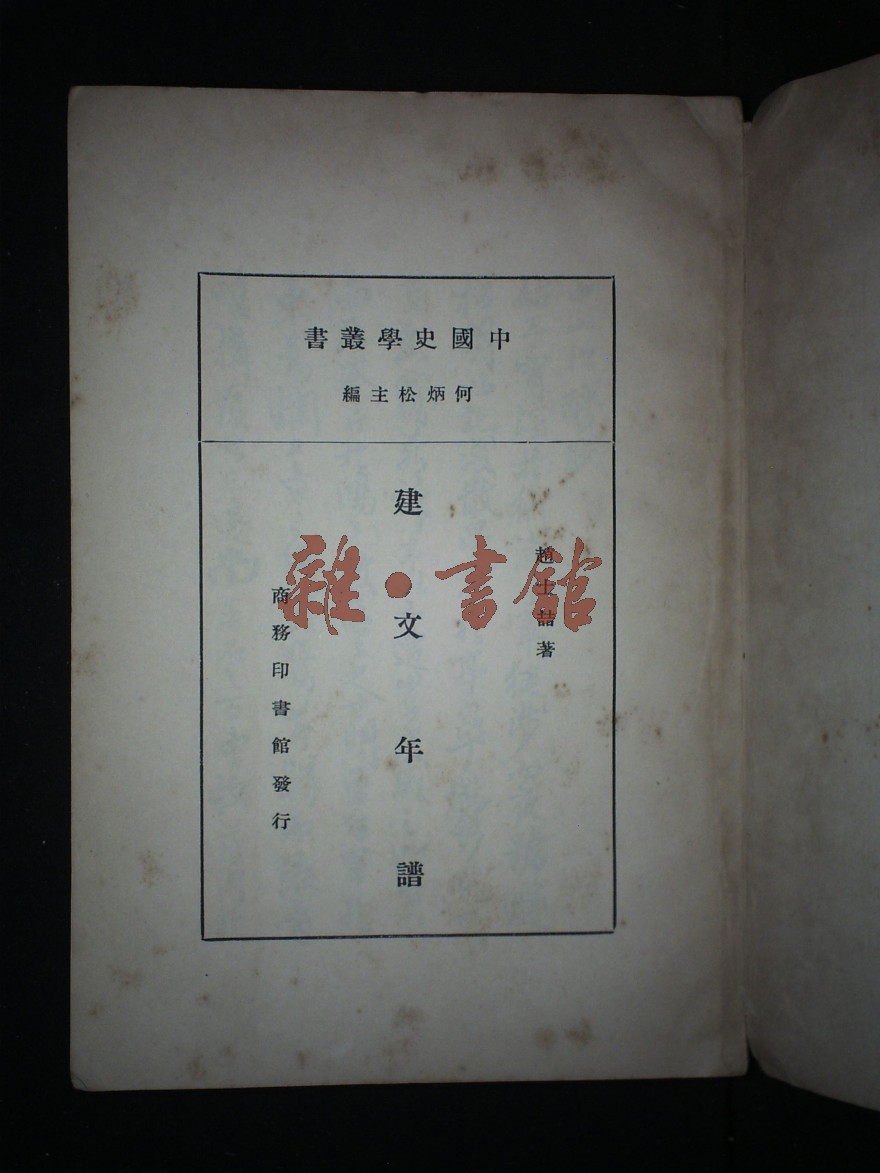 中國史學叢書
何炳松主編
趙士喆著
建文年譜
商務印書館發行
雜•書館